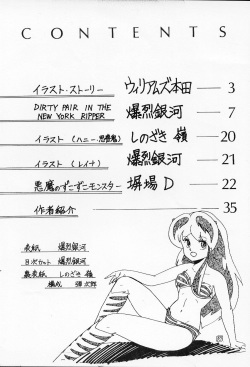 CONTENTS
イラスト・ストーリー ウィリアムズ本田 3
DIRTY PAIR IN THE
NEW YORK RIPPER 爆烈銀河 7
イラスト(ハニー・悪魔) しのざき嶺 20
イラスト(レイナ) 爆烈銀河 21
悪魔のずこずこモンスター 塀場D 22
作者紹介 35
表紙 爆烈銀河
目次カット 爆烈銀河
裏表紙 しのざき嶺
構成